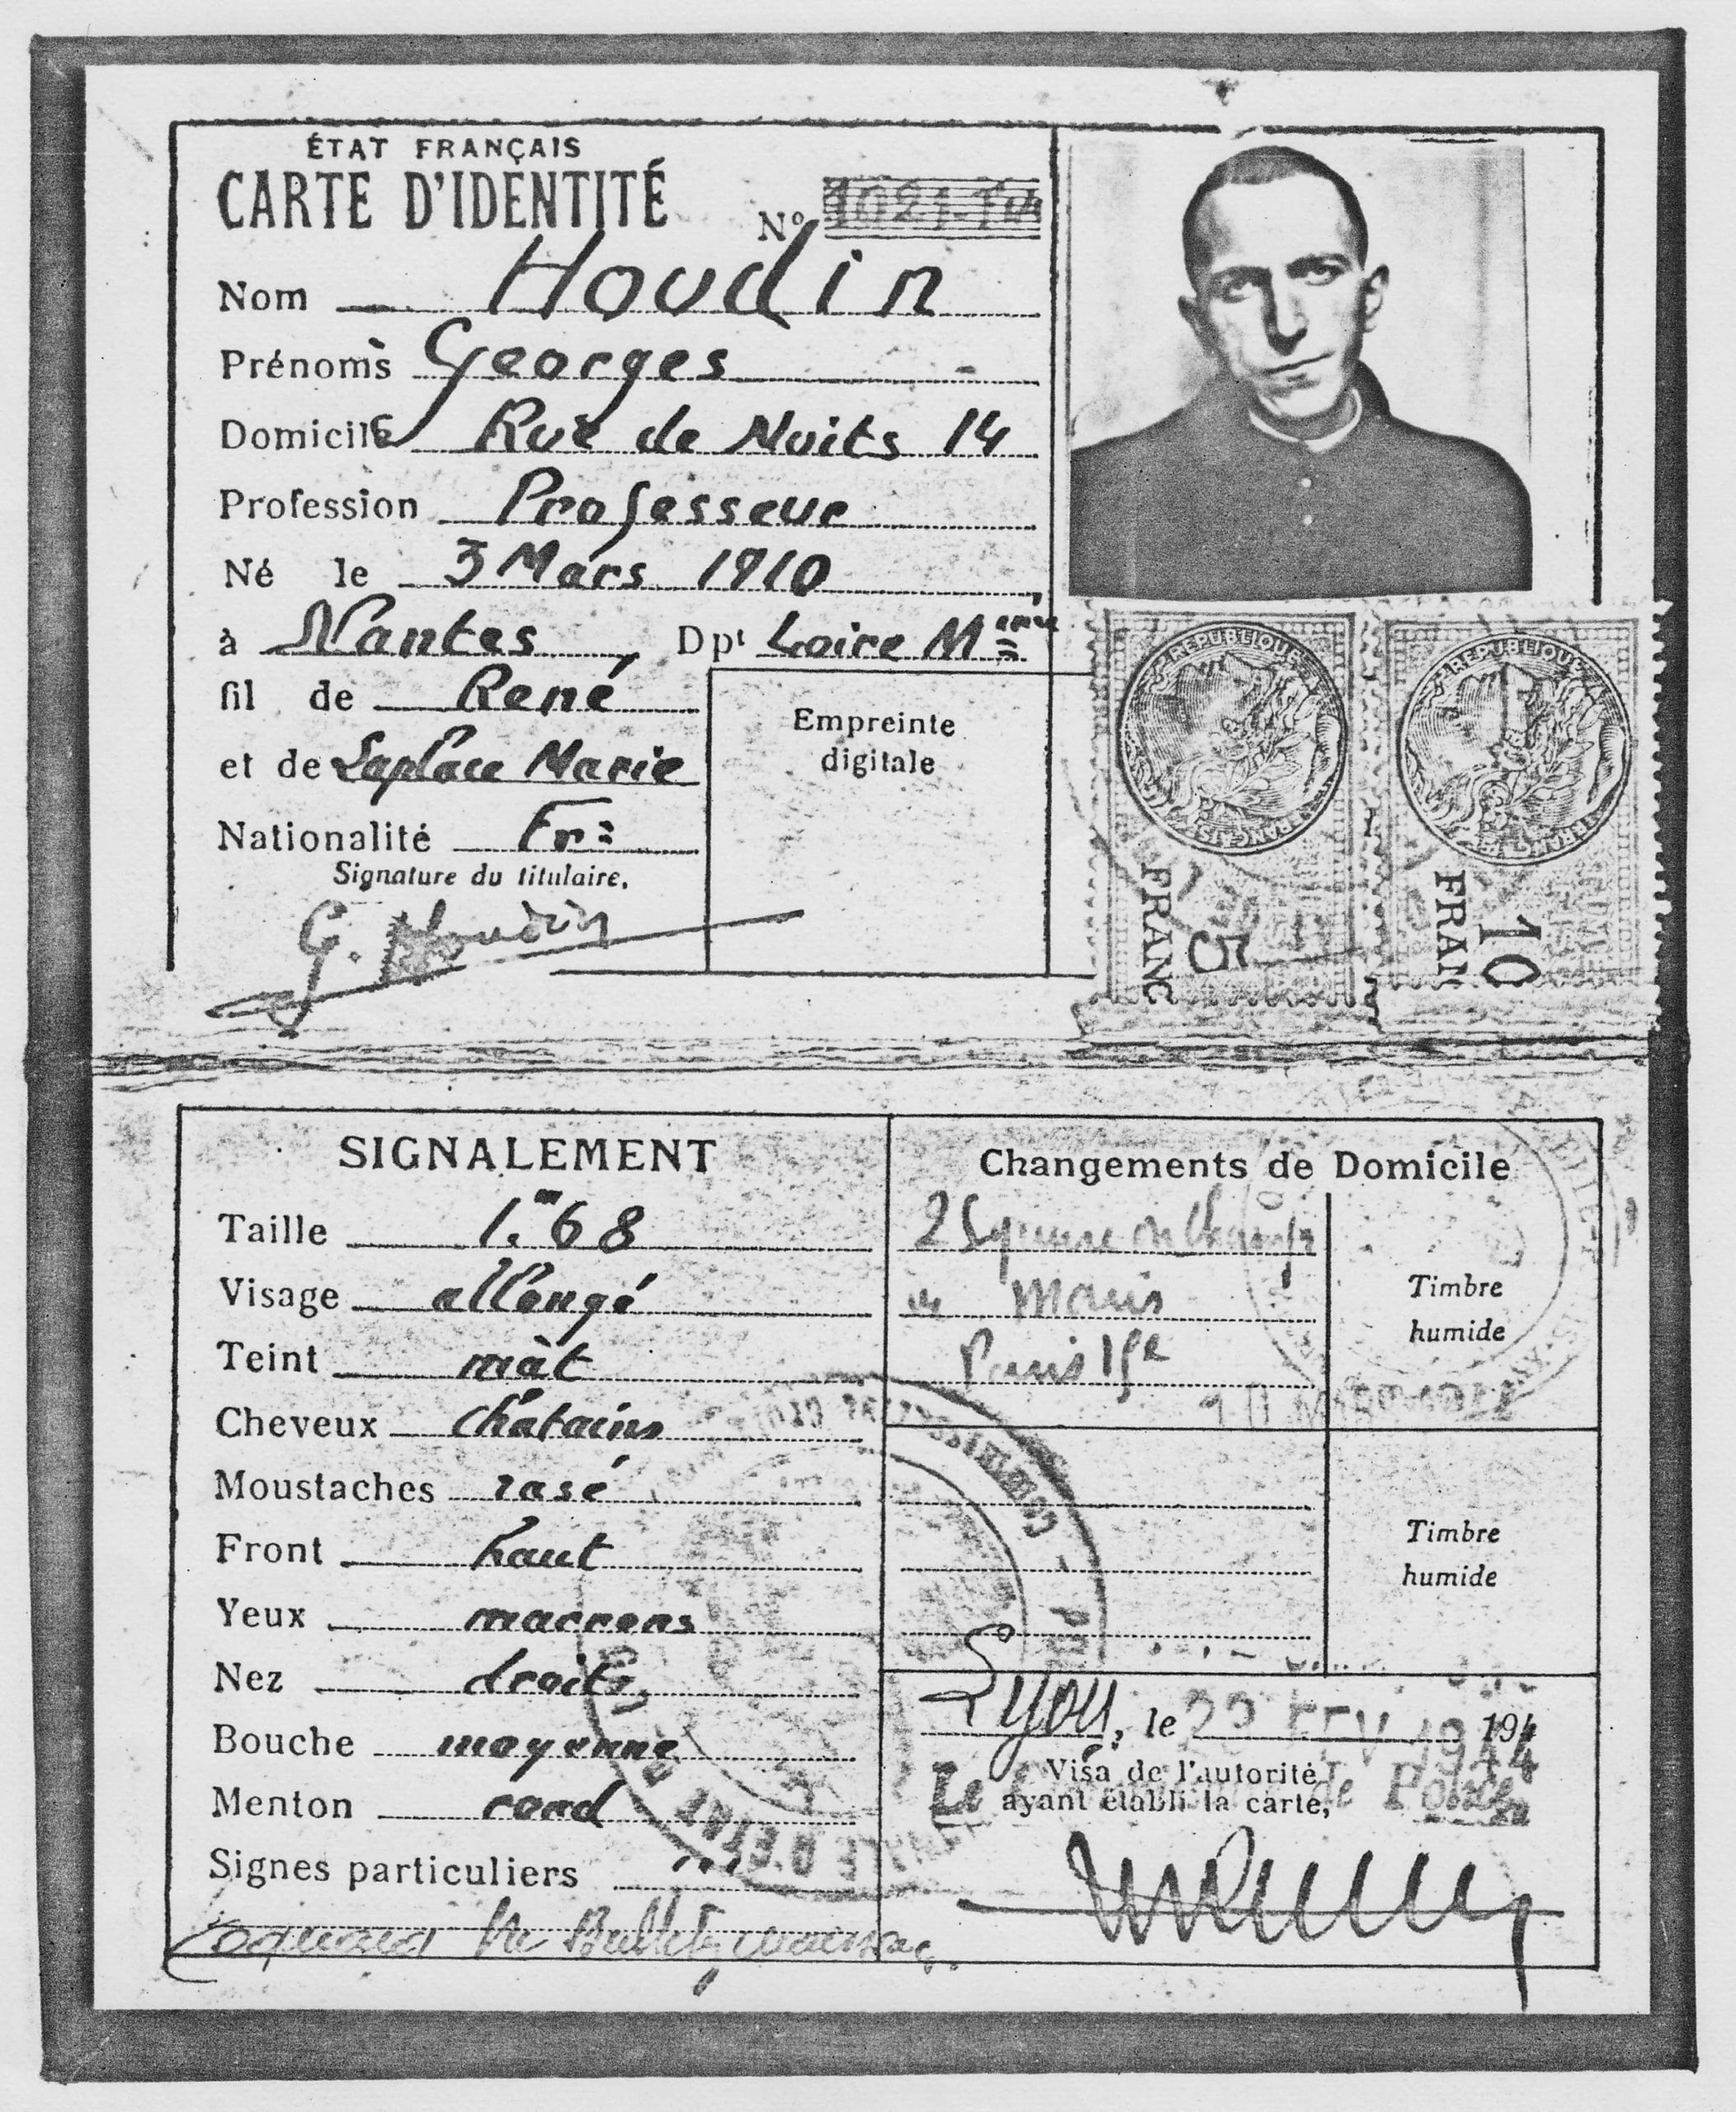 ÉTAT FRANÇAIS
CARTE D'IDENTITÉ
Nº
Nom Houdin
Prénoms Georges
Domicile Rue de Nuits 14
Profession Professeur
Né le 3 Mars 1910
à Nantes, Dpt Loire M
fil de René
et de Laplace Marie
Nationalité Frse
Signature du titulaire,
G. Houdin
Empreinte
digitale
REPUBLIQUE FRANÇAISE
5 FRANC
REPUBLIQUE FRANÇAISE
10 FRAN
SIGNALEMENT
Taille 1.m68
Visage allongé
Teint màt
Cheveux châtains
Moustaches rasé
Front haut
Yeux marrons
Nez droit
Bouche moyenne
Menton rond
Signes particuliers
Changements de Domicile
2 Square
Paris 15e
Timbre
humide
Timbre
humide
Lyon, le 194
FEV 1944
Visa de l'autorité
ayant établi la carte,
Le de Police